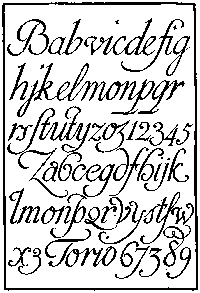 Babvicdefig
hjkelmonpqr
rsſtutyzoz12345
Zabcegdfhijk
lmonpqrvystſw
x3 Torio 67389